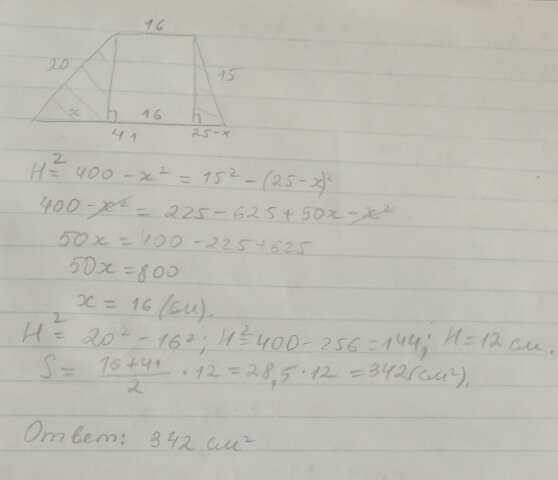 16
20
15
x 16
41 25-x
H² = 400 - x² = 15² - (25-x)²
400 - x² = 225 - 625 + 50x - x²
50x = 400 - 225 + 625
50x = 800
x = 16 (см).
H² = 20² - 16²; H² = 400 - 256 = 144; H = 12 см.
S = (16+41)/2 · 12 = 28,5 · 12 = 342 (см²).
Ответ: 342 см²